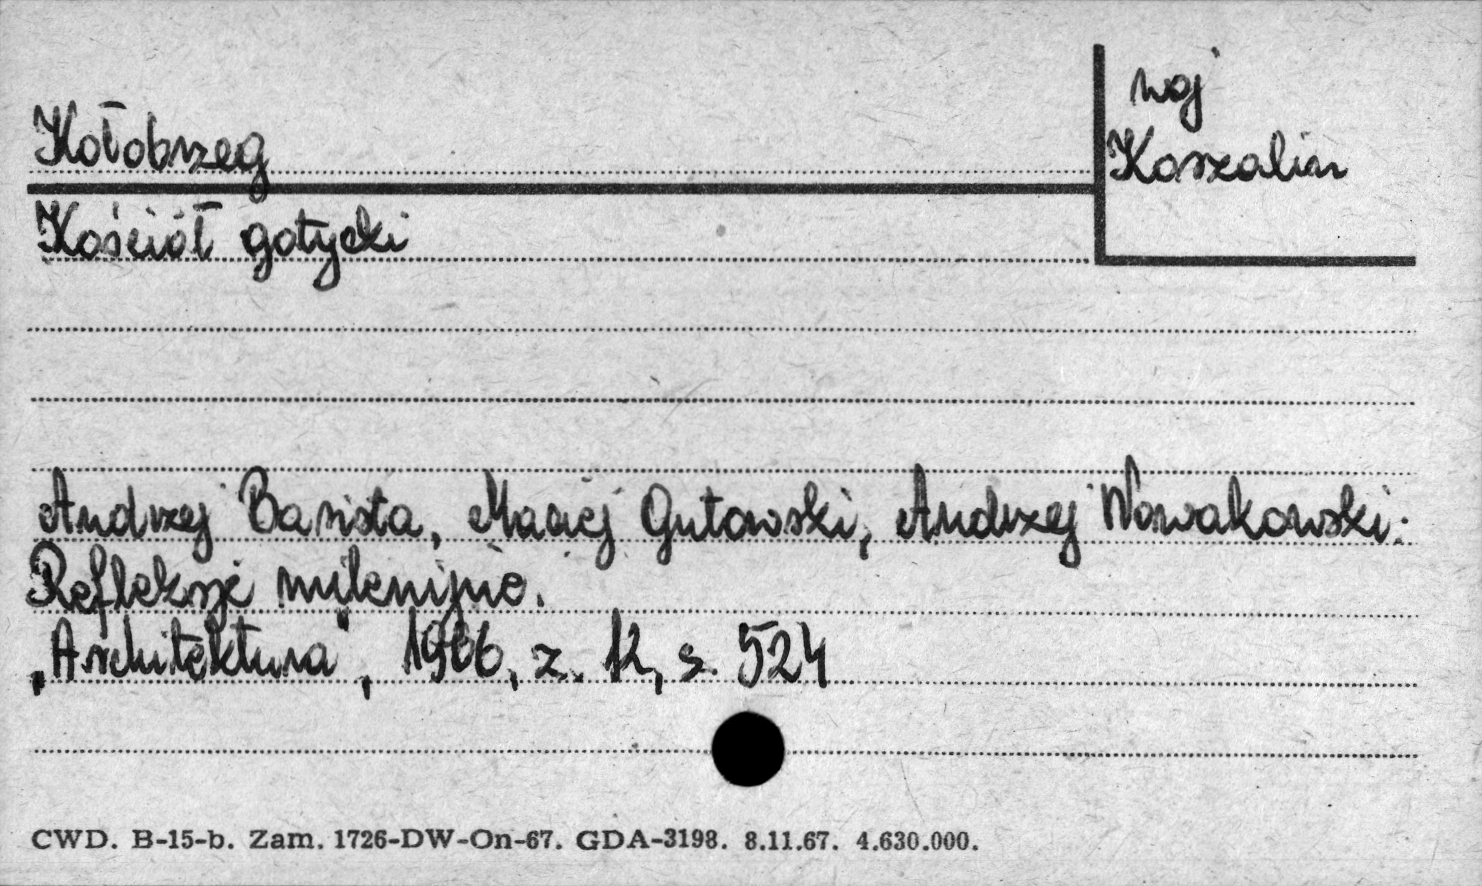 Kołobrzeg
woj
Koszalin
Kościół gotycki
Andrzej Basista, Maciej Gutowski, Andrzej Nowakowski:
Refleksje milenijne.
„Architektura", 1966, z. 12, s. 524
CWD. B-15-b. Zam. 1726-DW-On-67. GDA-3198. 8.11.67. 4.630.000.